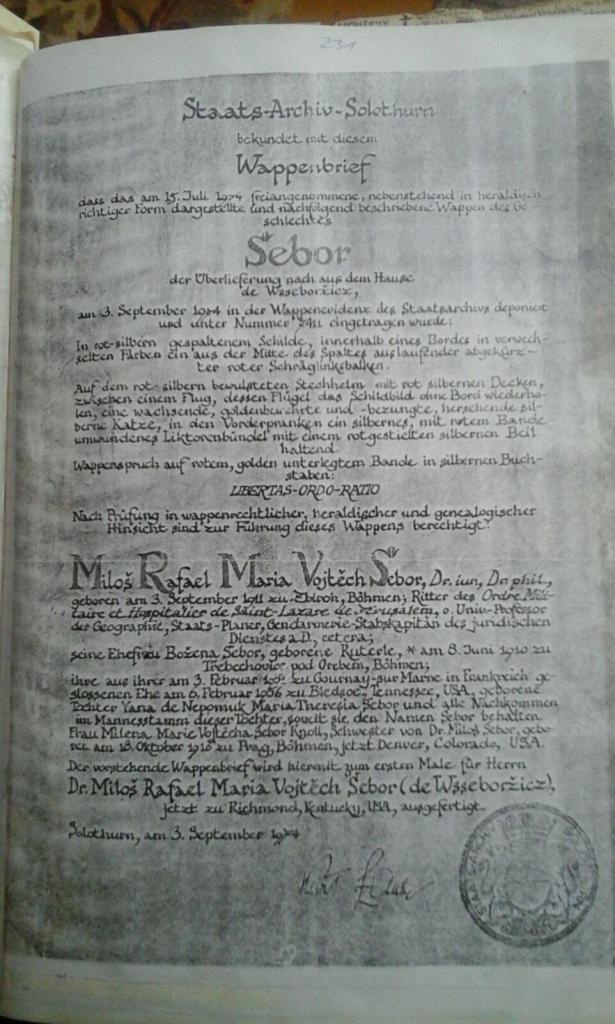 231
Staats-Archiv-Solothurn
bekundet mit diesem
Wappenbrief
dass das am 15. Juli 1974 freiangenommene, nebenstehend in heraldisch
richtiger Form dargestellte und nachfolgend beschriebene Wappen des Ge-
schlechtes
Šebor
der Überlieferung nach aus dem Hause
de Wsseboržicz,
am 3. September 1974 in der Wappenevidenz des Staatsarchivs deponiert
und unter Nummer eingetragen wurde:
In rot-silbern gespaltenem Schilde, innerhalb eines Bordes in verwech-
selten Farben ein aus der Mitte des Spaltes auslaufender abgekürz-
ter roter Schräglinksbalken.
Auf dem rot-silbern bewulsteten Stechhelm mit rot silbernen Decken,
zwischen einem Flug, dessen Flügel das Schildbild ohne Bord wiederho-
len, eine wachsende, goldenbewehrte und -bezungte, herschende sil-
berne Katze, in den Vorderpranken ein silbernes, mit rotem Bande
umwundenes Liktorenbündel mit einem rotgestielten silbernen Beil
haltend.
Wappenspruch auf rotem, golden unterlegtem Bande in silbernen Buch-
staben:
LIBERTAS-ORDO-RATIO
Nach Prüfung in wappenrechtlicher, heraldischer und genealogischer
Hinsicht sind zur Führung dieses Wappens berechtigt:
Miloš Rafael Maria Vojtěch Šebor, Dr. iur., Dr. phil.,
geboren am 3. September 1911 zu Zbiroh, Böhmen; Ritter des Ordre Mili-
taire et Hospitalier de Saint-Lazare de Jérusalem, o. Univ-Professor
der Geographie, Staats-Planer, Gendarmerie-Stabskapitän des juridischen
Dienstes a.D., cetera;
seine Ehefrau Božena Šebor, geborene Ruterle, * am 8. Juni 1910 zu
Trebechovice pod Orebem, Böhmen;
ihre aus ihrer am 3. Februar zu Gournay-sur Marne in Frankreich ge-
slossenen Ehe am 6. Februar 1956 zu Bledsoe, Tennessee, USA, geborene
Tochter Yana de Nepomuk Maria Theresia Šebor und alle Nachkommen
im Mannesstamm dieser Tochter, soweit sie den Namen Šebor behalten.
Frau Milena Marie Vojtěcha Šebor Knoll, Schwester von Dr. Miloš Šebor, gebo-
ren am 18. Oktober 1916 zu Prag, Böhmen, jetzt Denver, Colorado, USA.
Der vorstehende Wappenbrief wird hiermit zum ersten Male für Herrn
Dr. Miloš Rafael Maria Vojtěch Šebor (de Wsseboržicz),
jetzt zu Richmond, Kentucky, USA, ausgefertigt.
Solothurn, am 3. September 1974